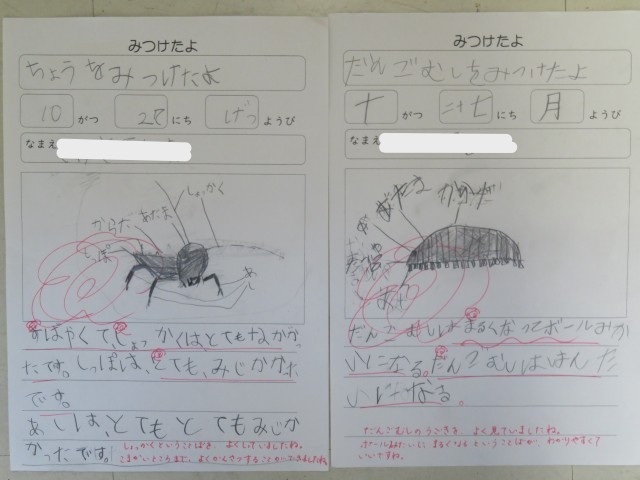 みつけたよ
ちょうをみつけたよ
10 がつ 28 にち げつ ようび
なまえ
しょっかく
からだ あたま
しっぽ
あし
すばやくて、しょっかくは、とてもながか
たです。しっぽは、とても、みじかかた
です。
あしは、とてもとてもみじか
かったです。
しょっかくということばを、よくしっていましたね。
こまかいところまで、よくかんさつすることができましたね。
みつけたよ
だんごむしをみつけたよ
十 がつ 二十七 にち 月 ようび
なまえ
あたま からだ
あし
だんごむしはまるくなってボールみたい
になる。だんごむしははんた
いになる。
だんごむしのうごきを、よく見ていましたね。
ボールみたいにまるくなるということばが、わかりやすくて
いいですね。